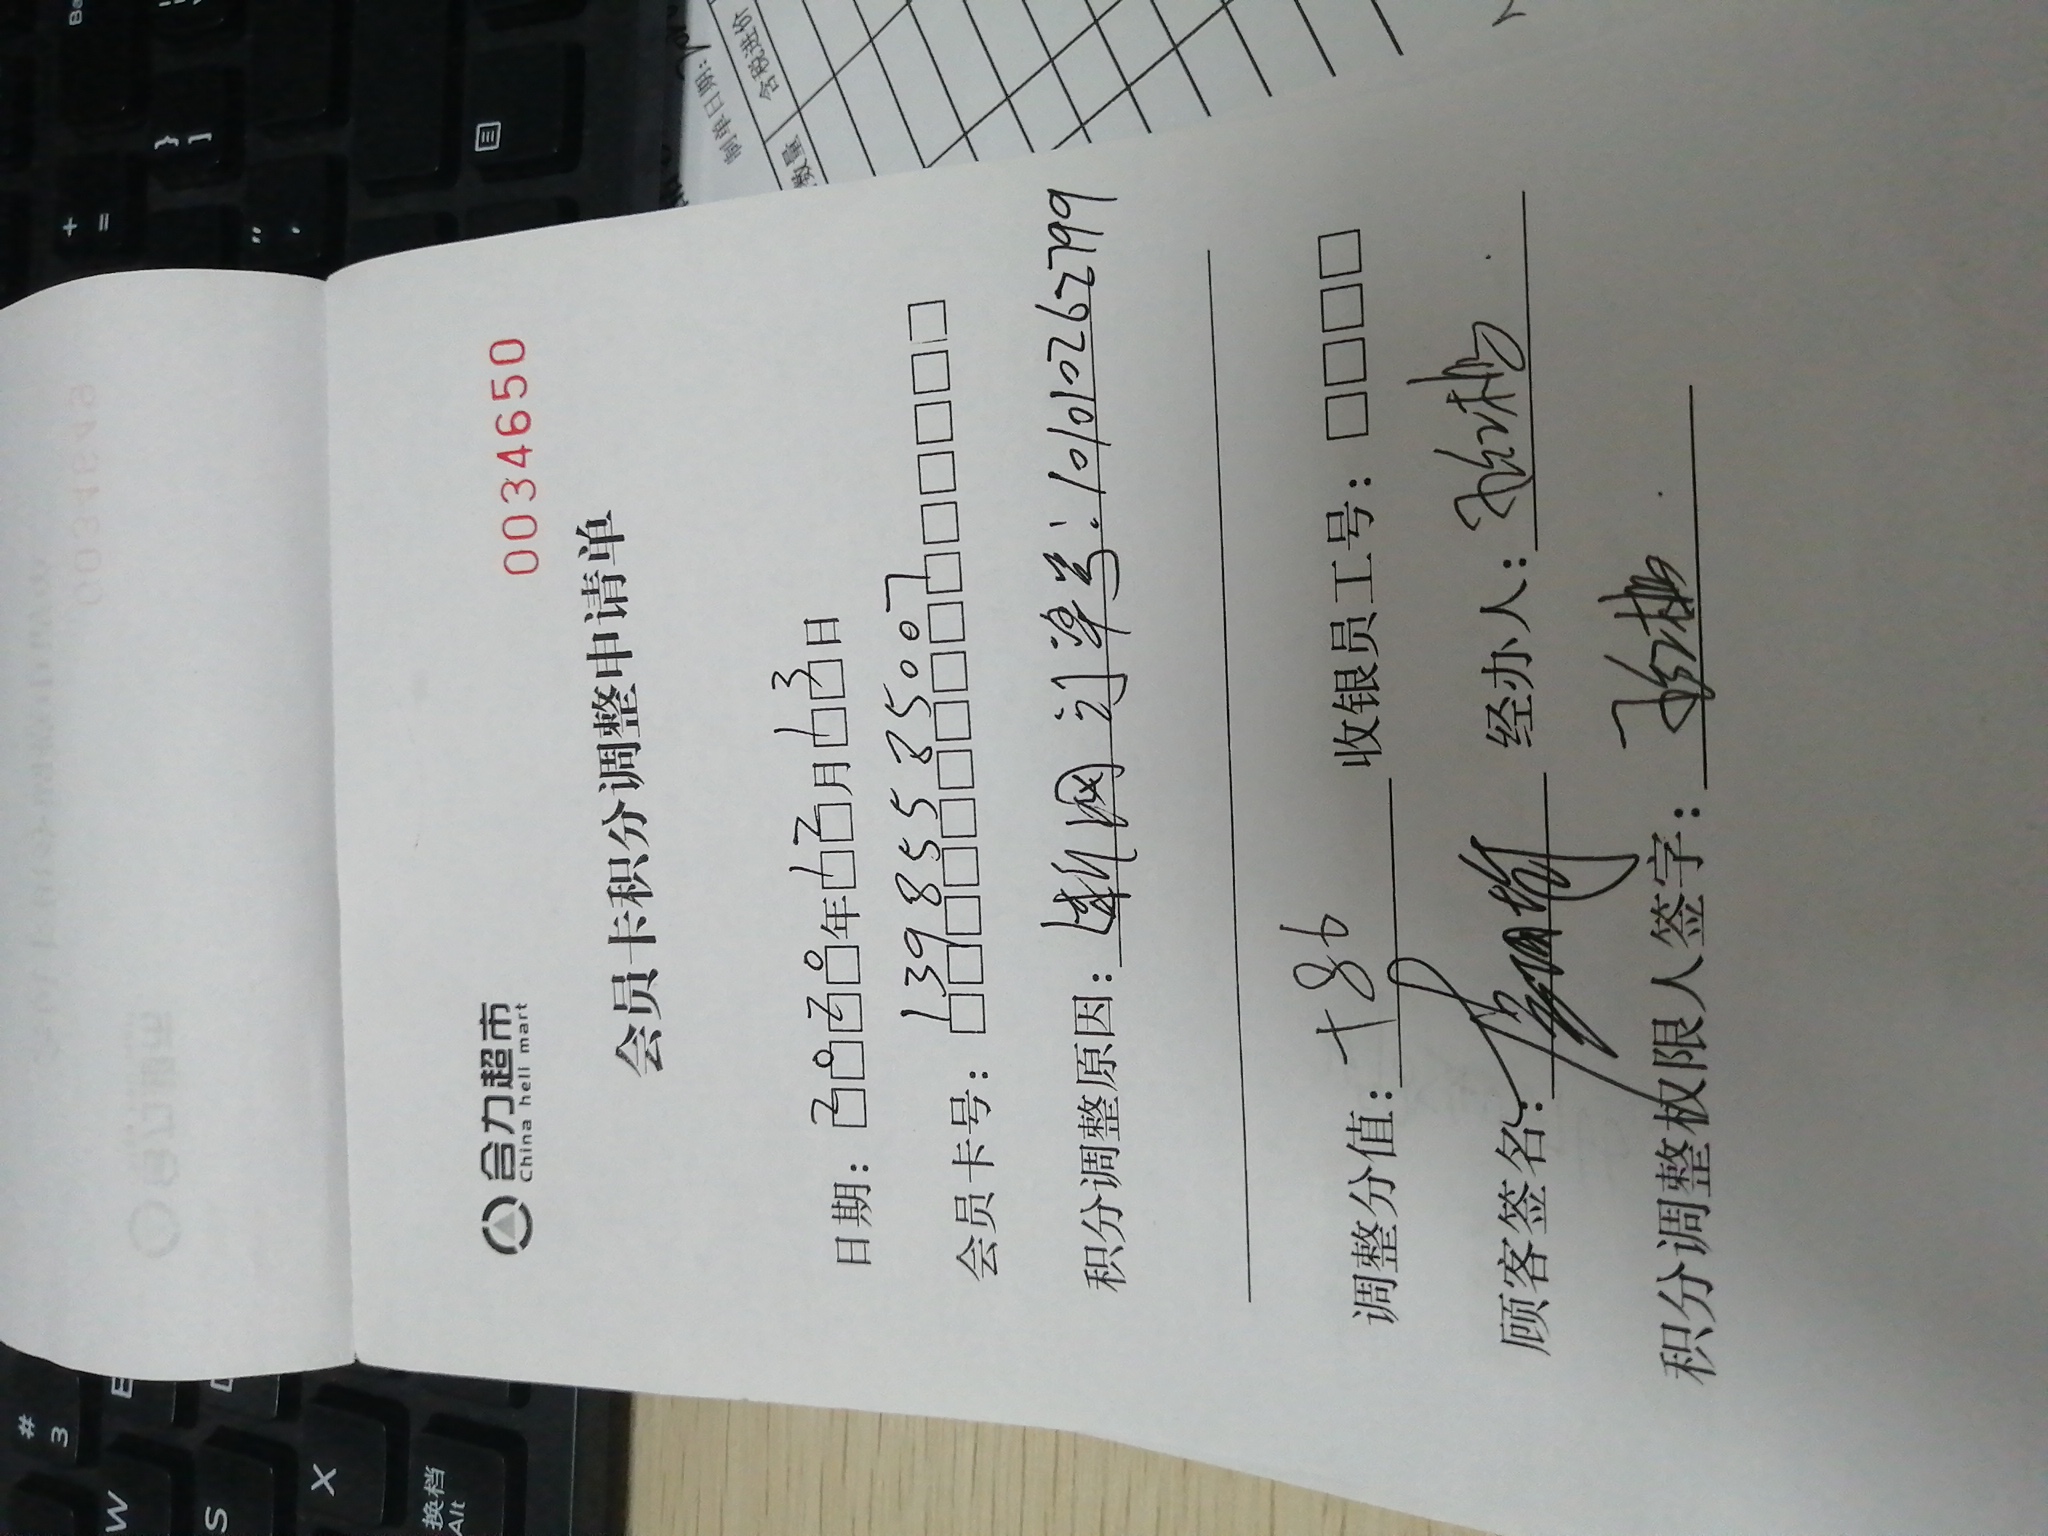 合力超市
China heli mart
0034650
会员卡积分调整申请单
日期：2020年12月13日
会员卡号：13985585007
积分调整原因：断网 订单号：101010262799
调整分值：+86 收银员工号：
顾客签名： 经办人：
积分调整权限人签字：
制单日期：
数量 含税进价
+
=
}
]
"
'
#
3
W
S
X
换档
Alt